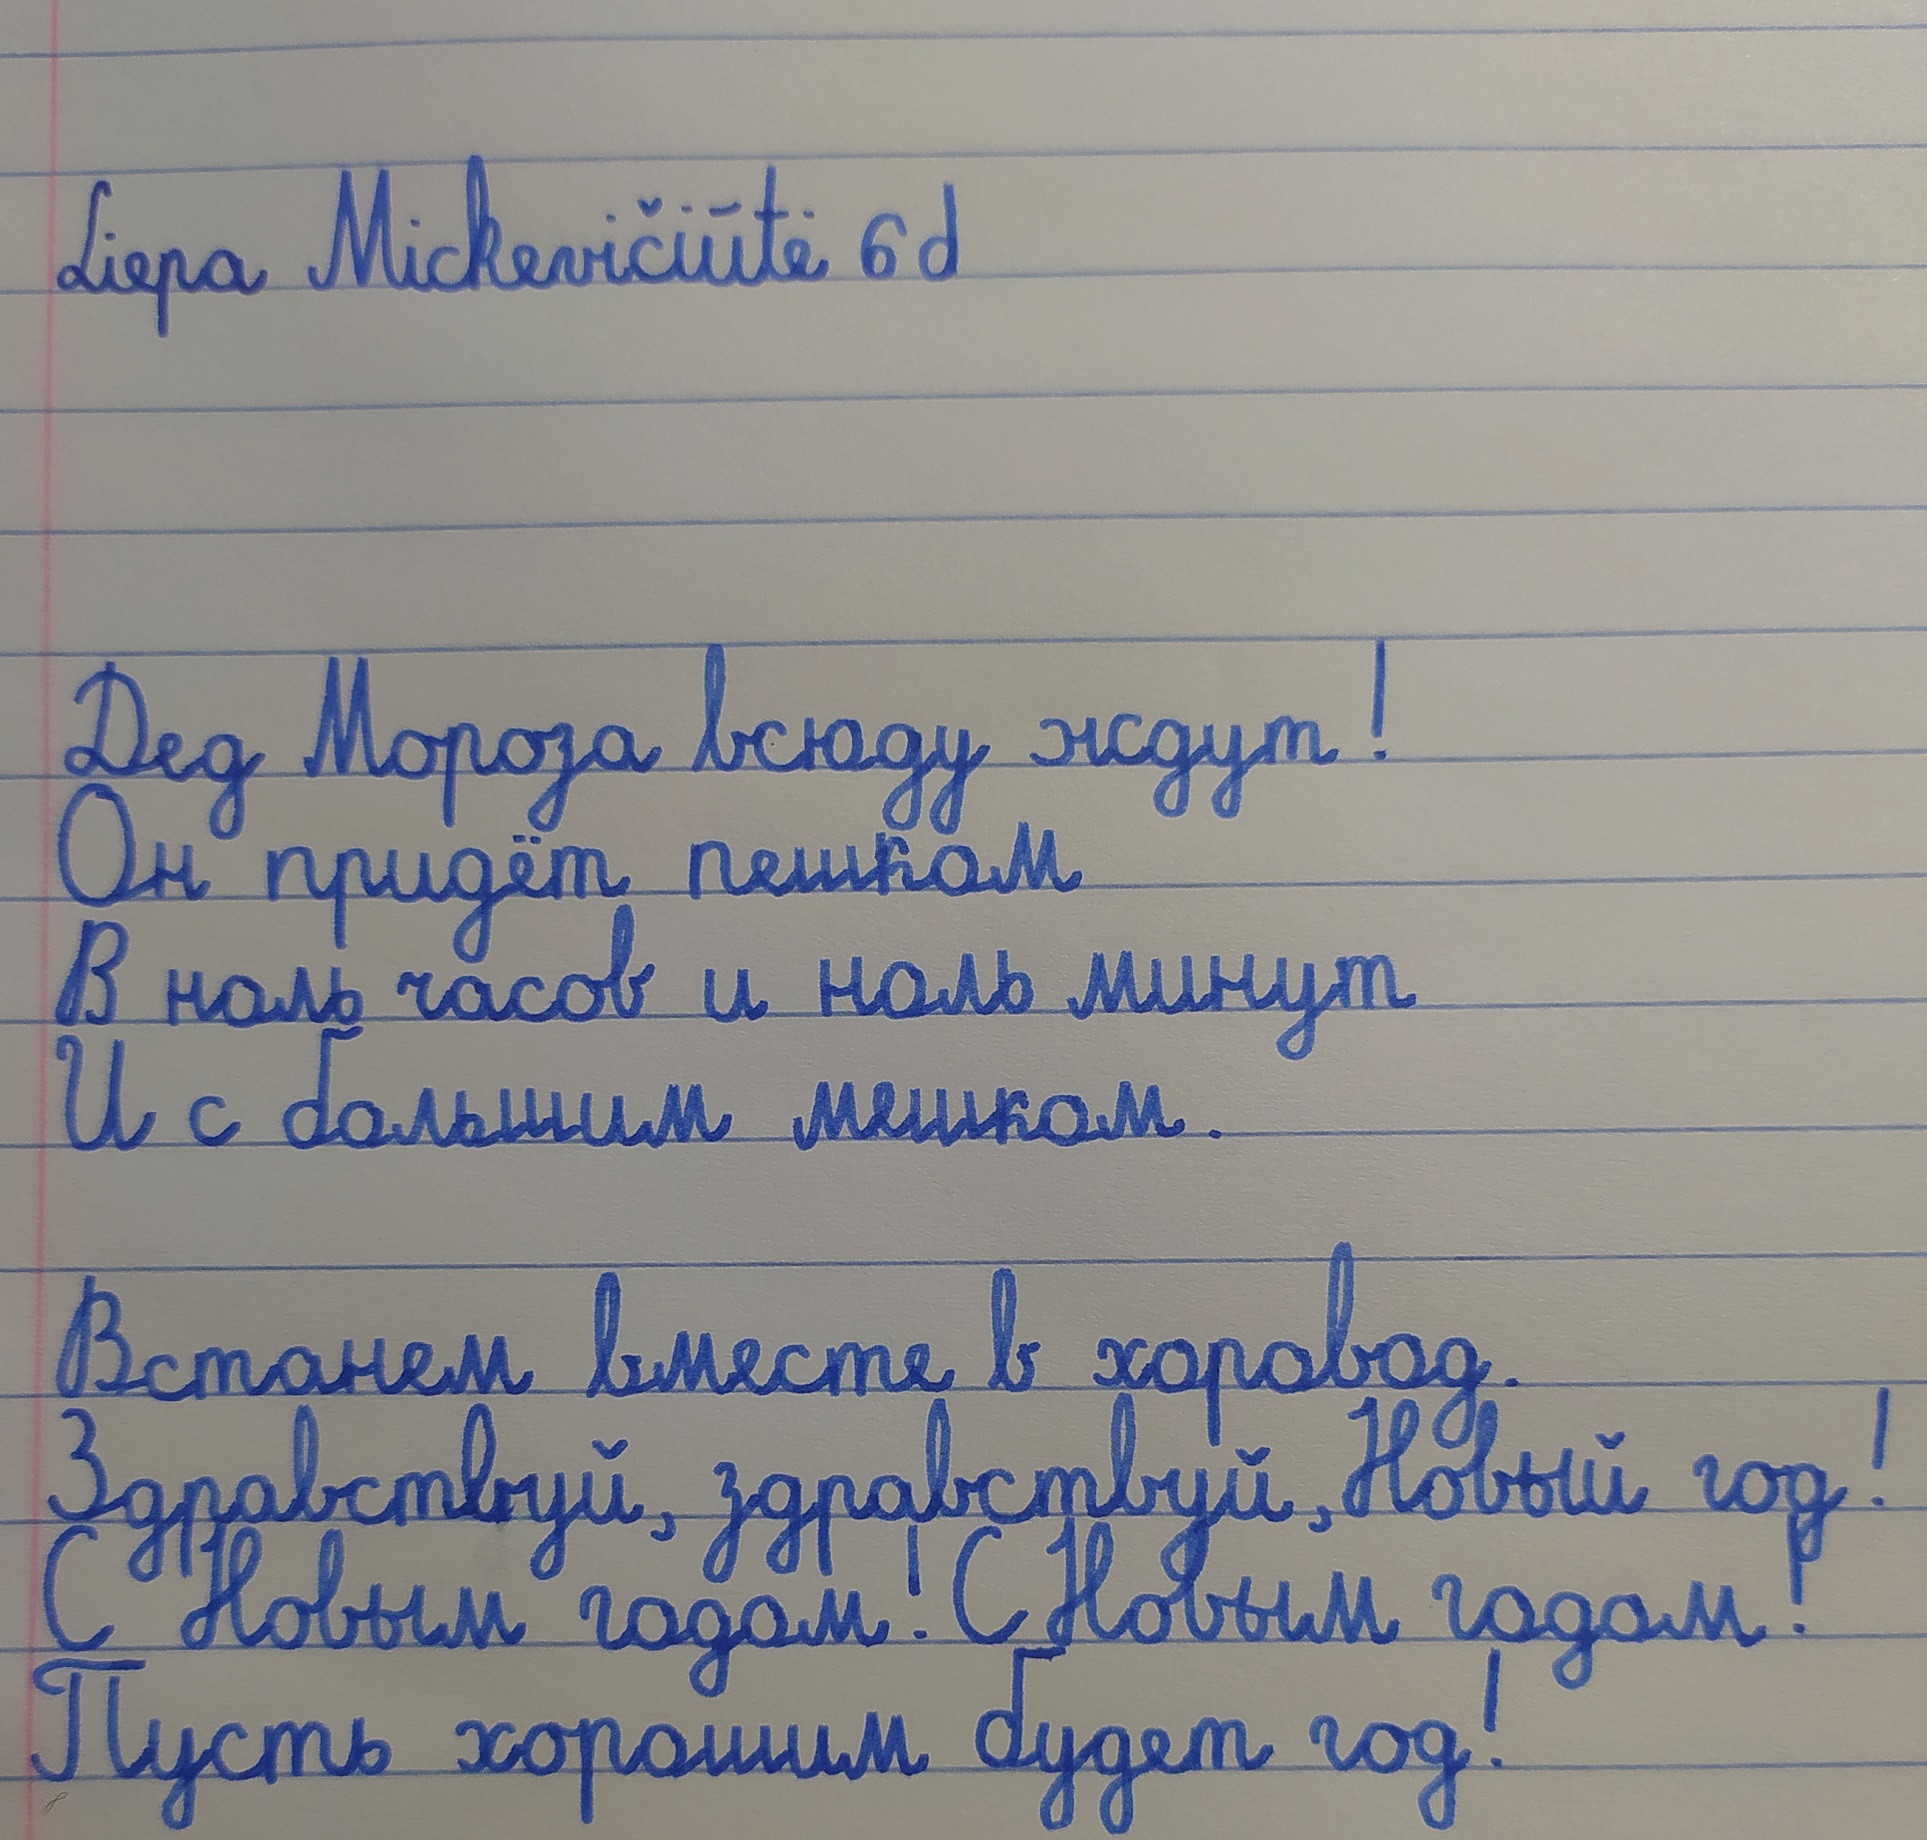 Liepa Mickevičiūtė 6d
Дед Мороза всюду ждут!
Он придёт пешком
В ноль часов и ноль минут
И с большим мешком.
Встанем вместе в хоровод.
Здравствуй, здравствуй, Новый год!
С Новым годом! С Новым годом!
Пусть хорошим будет год!